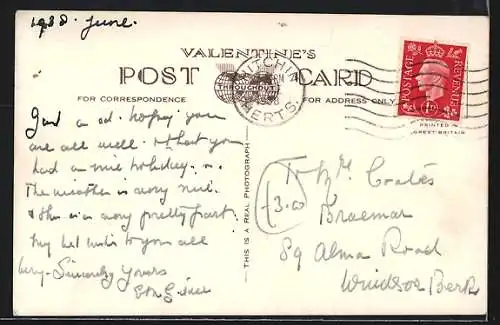 1938. June.
VALENTINE'S
POST CARD
HITCHIN
HERTS.
THROUGHOUT
FOR CORRESPONDENCE
FOR ADDRESS ONLY
POSTAGE REVENUE
1D
PRINTED
GREAT BRITAIN
THIS IS A REAL PHOTOGRAPH
Just a cd. hoping you
are all well. & that you
had a nice holiday.
The weather is very
& this is a very pretty part.
My best wishes to you all
Very Sincerely Yours
3.00
To Mr Coates
Braemar
89 Alma Road
Windsor Berks